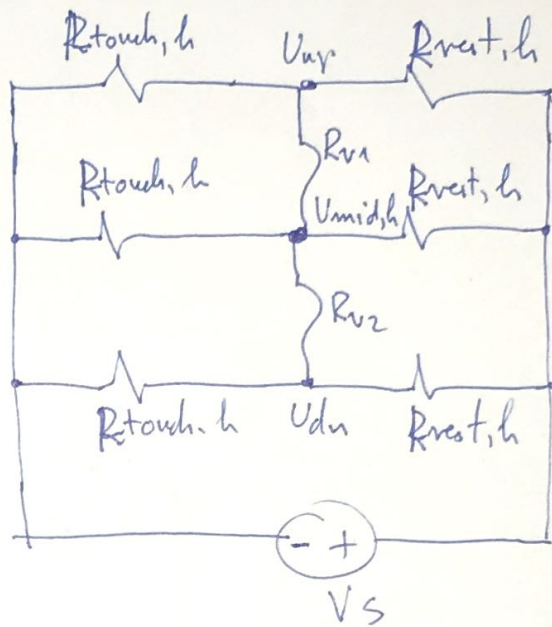 Rtouch, h Uup Rrest, h
Rv1
Rtouch, h Umid,h Rrest, h
Rv2
Rtouch. h Udn Rrest, h
- +
Vs